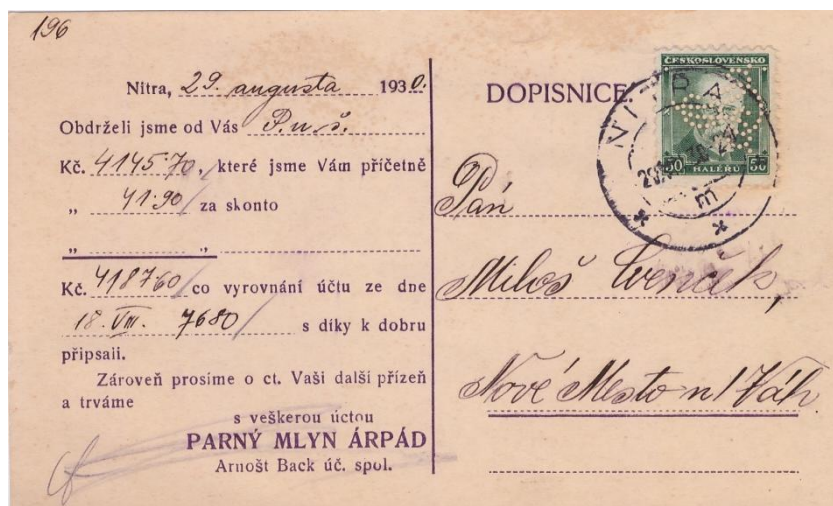 196
Nitra, 29. augusta 1930.
Obdrželi jsme od Vás P. u. š.
Kč. 4145·70, které jsme Vám příčetně
„ 41·90 za skonto
„ „
Kč. 418760 co vyrovnání účtu ze dne
18. VIII. 7680 s díky k dobru
připsali.
Zároveň prosime o ct. Vaši další přízeň
a trváme
s veškerou úctou
PARNÝ MLYN ÁRPÁD
Arnošt Back úč. spol.
DOPISNICE
ČESKOSLOVENSKO
50 HALÉŘŮ 50
NITRA
Pán
Miloš
Nové Mesto n/Váh